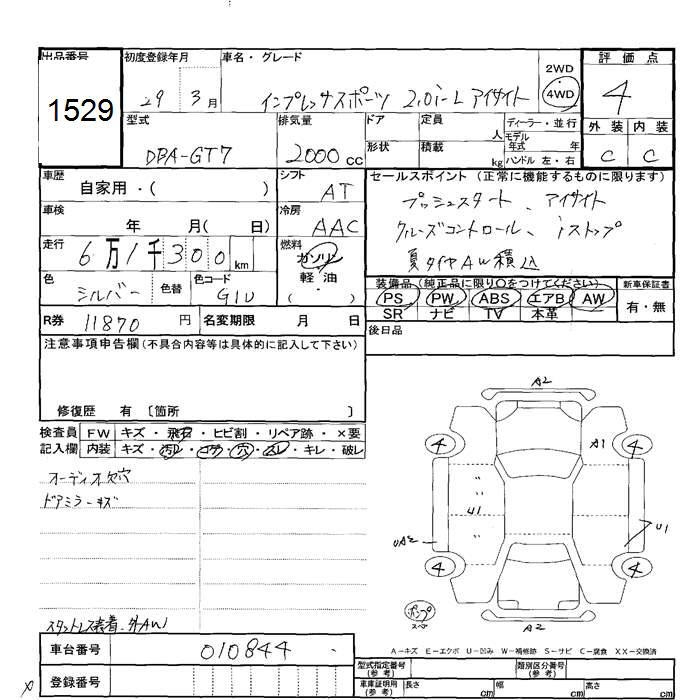 出品番号
1529
初度登録年月
29 3月
車名・グレード
インプレッサスポーツ 2.0i-L アイサイト
2WD
4WD
評価点
4
外装 内装
C C
型式
DBA-GT7
排気量
2000 cc
ドア
形状
定員
人
積載
kg
ディーラー・並行
モデル
年式 年
ハンドル 左・右
車歴
自家用・( )
シフト
AT
車検
年 月( 日)
冷房
AAC
走行
6万1千300km
燃料
ガソリン
軽油
( ・ )
色
シルバー
色替
色コード
G1U
セールスポイント(正常に機能するものに限ります)
プッシュスタート、アイサイト
クルーズコントロール、iストップ
夏タイヤAW積込
装備品(純正品に限り○をつけてください)
PS PW ABS エアB AW
SR ナビ TV 本革
新車保証書
有・無
後日品
R券 11870 円
名変期限 月 日
注意事項申告欄(不具合内容等は具体的に記入して下さい)
修復歴 有〔箇所 〕
検査員
記入欄
FW キズ・飛石・ヒビ割・リペア跡・×要
内装 キズ・汚レ・コゲ・穴・スレ・キレ・破レ
オーディオ欠穴
ドアミラーキズ
スタットレス装着・外AW
A2
A1
4 4
U1
UA2
U1
4 4
A2
ポンプ
スペ
A-キズ E-エクボ U-凹み W-補修跡 S-サビ C-腐食 XX-交換済
車台番号
010844
登録番号
型式指定番号
(参考)
類別区分番号
(参考)
車庫証明用
(参考)
長さ cm
幅 cm
高さ cm